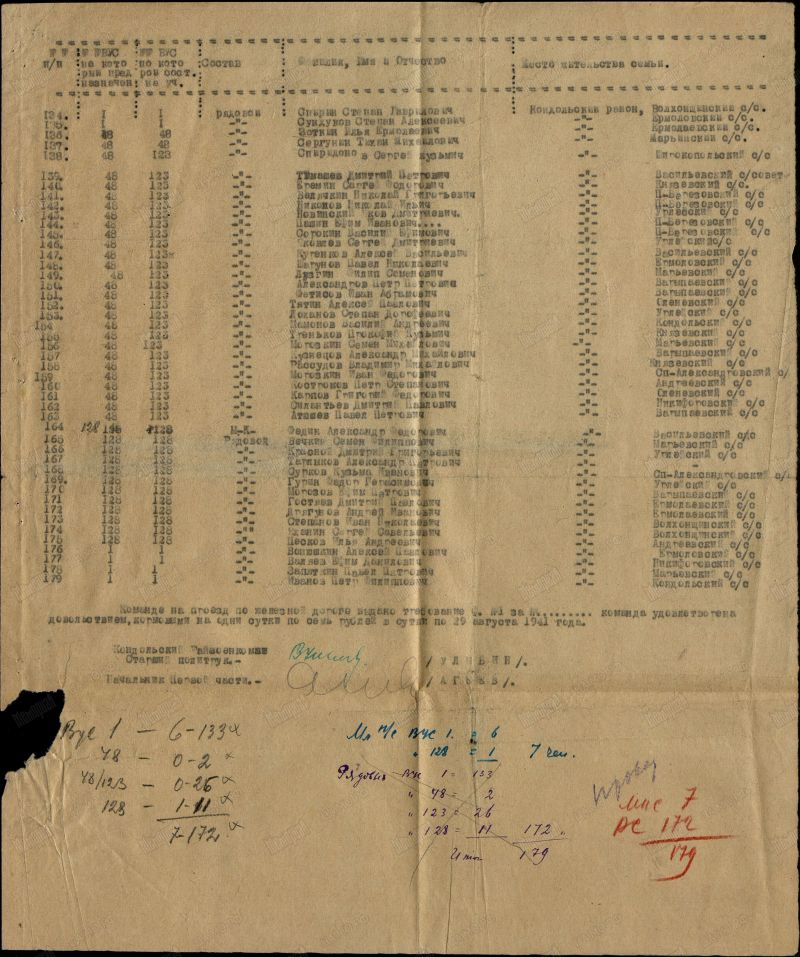 №№ №№ВУС №№ ВУС
п/п по кото по кото Состав Фамилия, Имя и Отчество Место жительства семьи.
рый пред рой сост.
назначен. на уч.
134. I I рядовой Спирин Степан Гаврилович Кондольский район, Волхонщинский с/с.
135. I I -"- Сундуков Степан Алексеевич -"- Ермоловский с/с.
136. 48 48 -"- Зоткин Илья Ермолаевич -"- Ермолаевский с/с.
137. 48 48 -"- Сергунин Тихон Михайлович -"- Марьинский с/с.
138. 48 123 -"- Спиридоно в Сергей Кузьмич -"- Широкопольский с/с
139. 48 123 -"- Тумашев Дмитрий Петрович -"- Васильевский с/совет
140. 48 123 -"- Еремин Сергей Федорович -"- Князевский с/с.
141. 48 123 -"- Николай Григорьевич -"- П-Березовский с/с
142. 48 123 -"- Никонов Николай Ильич -"- П-Березовский с/с
143. 48 123 -"- Новинский Яков Дмитриевич. -"- Углевский с/с
144. 48 123 -"- Папин Ефим Иванович.... -"- П-Березовский с/с
145. 48 123 -"- Сорокин Василий Ефимович -"- П-Березовский с/с
146. 48 123 -"- Яковлев Сергей Дмитриевич -"- Углевский с/с
147. 48 123 -"- Кутенков Алексей Васильевич -"- Васильевский с/с
148. 48 123 -"- Павел Николаевич -"- Ермоловский с/с
149. 48 123 -"- Лузгин Филипп Семенович -"- Марьевский с/с
150. 48 123 -"- Александров Петр Петрович -"- Вагапаевский с/с
151. 48 123 -"- Фетисов Иван Абрамович -"- Вагапаевский с/с
152. 48 123 -"- Тятин Алексей Павлович -"- Оленевский с/с
153. 48 123 -"- Лоханов Степан Дорофеевич -"- Углевский с/с
154 48 123 -"- Мамонов Василий Андреевич -"- Кондольский с/с
155 48 123 -"- Треньков Прокофий Кузьмич -"- Князевский с/с
156 48 123 -"- Моговкин Семен Михайлович -"- Марьевский с/с
157 48 123 -"- Кузнецов Александр Михайлович -"- Вагапаевский с/с
158 48 123 -"- Рассудов Владимир Михайлович -"- Князевский с/с
159 48 123 -"- Моговкин Иван Федорович -"- Сп-Александровский с/
160 48 123 -"- Костромов Петр Степанович -"- Андреевский с/с
161 48 123 -"- Карпов Григорий Федорович -"- Оленевский с/с
162 48 123 -"- Силантьев Дмитрий Павлович -"- Никифоровский с/с
163 48 123 -"- Атяшев Павел Петрович -"- Вагапаевский с/с
164 128 128 М-К- Федин Александр Федорович -"- Васильевский с/с
165 128 128 Рядовой Вечкин Семен Филиппович -"- Марьевский с/с
166 128 128 -"- Красной Дмитрий Григорьевич -"- Углевский с/с
167 128 128 -"- Александр Петрович -"- -"-
168 128 128 -"- Сурков Кузьма Иванович -"- Сп-Александровский с/с
169. 128 128 -"- Гурин Федор Герасимович -"- Углевский с/с
170 128 128 -"- Морозов Ефим Петрович -"- Вагапаевский с/с
171 128 128 -"- Гостяев Дмитрий Павлович -"- Ермолаевский с/с
172 128 128 -"- Драгунов Андрей Иванович -"- Ермолаевский с/с
173 128 128 -"- Степанов Иван Николаевич -"- Волхонщинский с/с
174 128 128 -"- Уханин Сергей Савельевич -"- Волхонщинский с/с
175 128 128 -"- Песков Илья Андреевич -"- Андреевский с/с
176 I I -"- Волошин Алексей Павлович -"- Ермоловский с/с
177 I I -"- Валяев Ефим Данилович -"- Никифоровский с/с
178 I I -"- Запяткин Павел Петрович -"- Марьевский с/с
179 I I -"- Иванов Петр Филиппович -"- Кондольский с/с
Команде на проезд по железной дороге выдано требование ф. №1 за №......... команда удовлетворена
довольствием, кормовыми на одни сутки по семь рублей в сутки по 29 августа 1941 года.
Кондольский Райвоенкомат
Старший политрук.- /УЛЫБИН/.
Начальник Первой части.- /АГЕЕВ/.
Вус 1 — 6-133
48 — 0-2
48/123 — 0-26
128 — 1-11
7-172
Мл н/с Вус 1. = 6
" 128 = 1 7 чел.
Рядовых Вус 1 = 133
" 48 = 2
" 123 = 26
" 128 = 11 172 "
Итог 179
Провер
мнс 7
РС 172
179